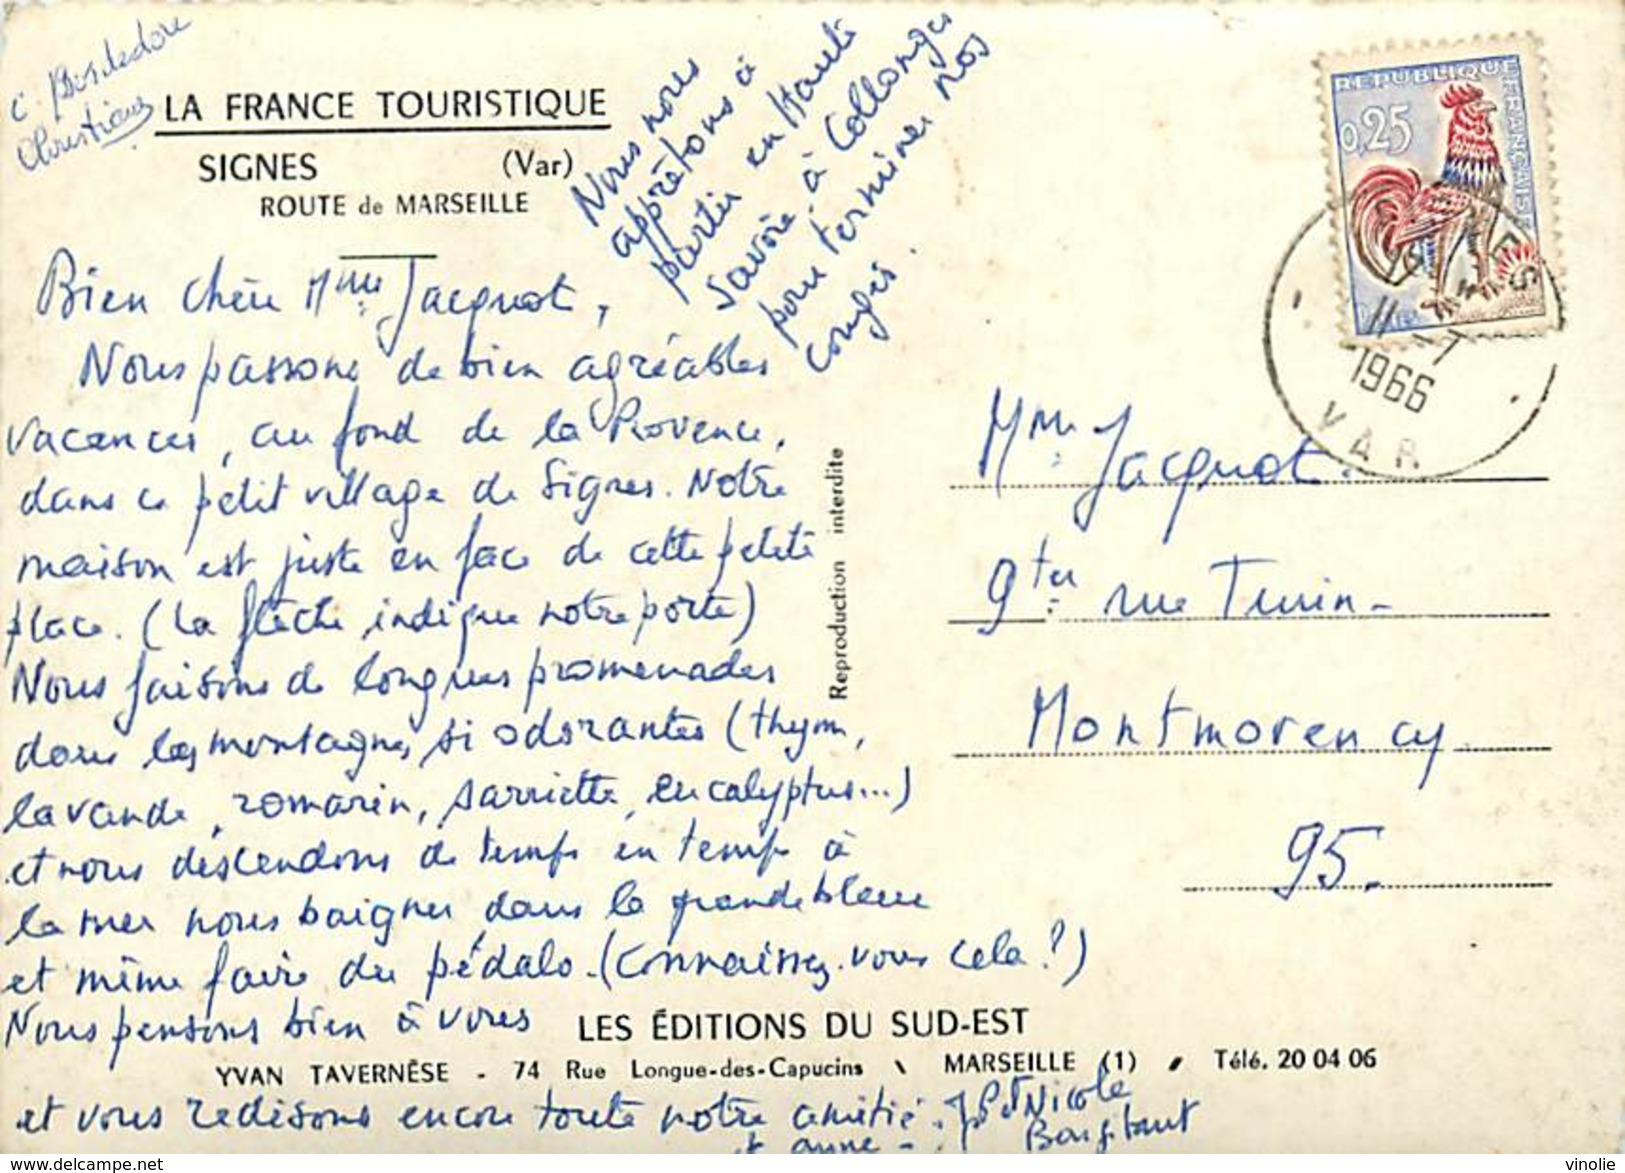 LA FRANCE TOURISTIQUE
SIGNES (Var)
ROUTE de MARSEILLE
Bien chère Mme Jacquot,
Nous passons de bien agréables
vacances, au fond de la Provence,
dans ce petit village de Signes. Notre
maison est juste en face de cette petite
place. (La flèche indique notre porte)
Nous faisons de longues promenades
dans les montagnes si odorantes (thym,
lavande, romarin, sarriette, eucalyptus...)
et nous descendons de temps en temps à
la mer nous baigner, dans la grande bleue
et même faire du pédalo. (Connaissez-vous cela?)
Nous pensons bien à vous
et vous redisons encore toute notre amitié
JP et Nicole
et Anne
Nous nous
apprêtons à
partir en Haute
Savoie, à Collonges
pour terminer nos
congés.
LES ÉDITIONS DU SUD-EST
YVAN TAVERNÈSE - 74 Rue Longue-des-Capucins \ MARSEILLE (1) Télé. 20 04 06
Reproduction interdite
RÉPUBLIQUE FRANÇAISE
0,25
POSTES
SIGNES
11-7
1966
VAR
Mme Jacquot
9ter rue Turin
Montmorency
95.
vinolie